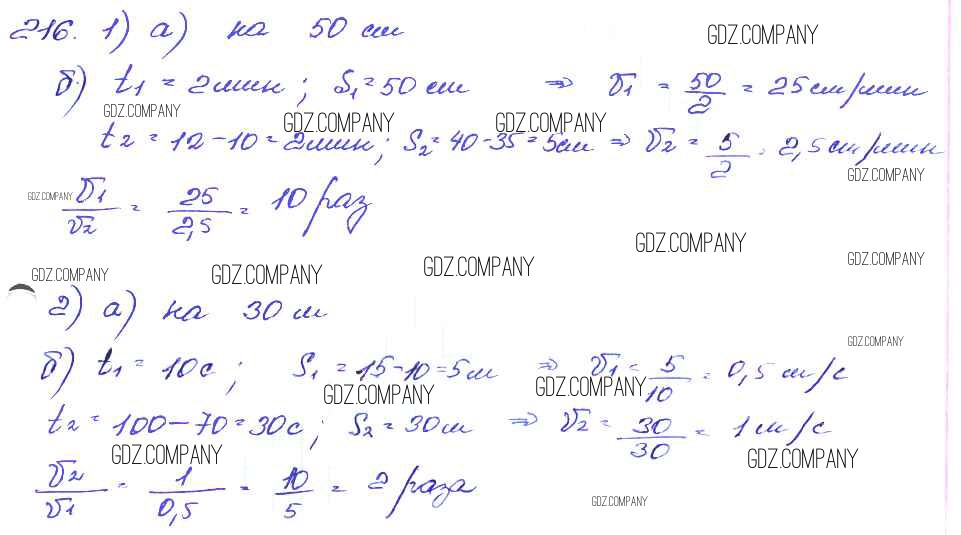 216. 1) а) на 50 см
GDZ.COMPANY
б) t₁ = 2мин; S₁=50 см ⇒ V₁ = 50/2 = 25 см/мин
GDZ.COMPANY GDZ.COMPANY GDZ.COMPANY
t₂ = 12-10=2мин; S₂=40-35=5см ⇒ V₂ = 5/2 = 2,5 см/мин
GDZ.COMPANY
GDZ.COMPANY
V₁/V₂ = 25/2,5 = 10 раз
GDZ.COMPANY
GDZ.COMPANY GDZ.COMPANY GDZ.COMPANY GDZ.COMPANY
2) а) на 30 м
GDZ.COMPANY
б) t₁ = 10с; S₁ = 15-10=5м ⇒ V₁ = 5/10 = 0,5 м/с
GDZ.COMPANY GDZ.COMPANY
t₂ = 100-70=30с; S₂=30м ⇒ V₂ = 30/30 = 1 м/с
GDZ.COMPANY GDZ.COMPANY
V₂/V₁ = 1/0,5 = 10/5 = 2 раза
GDZ.COMPANY